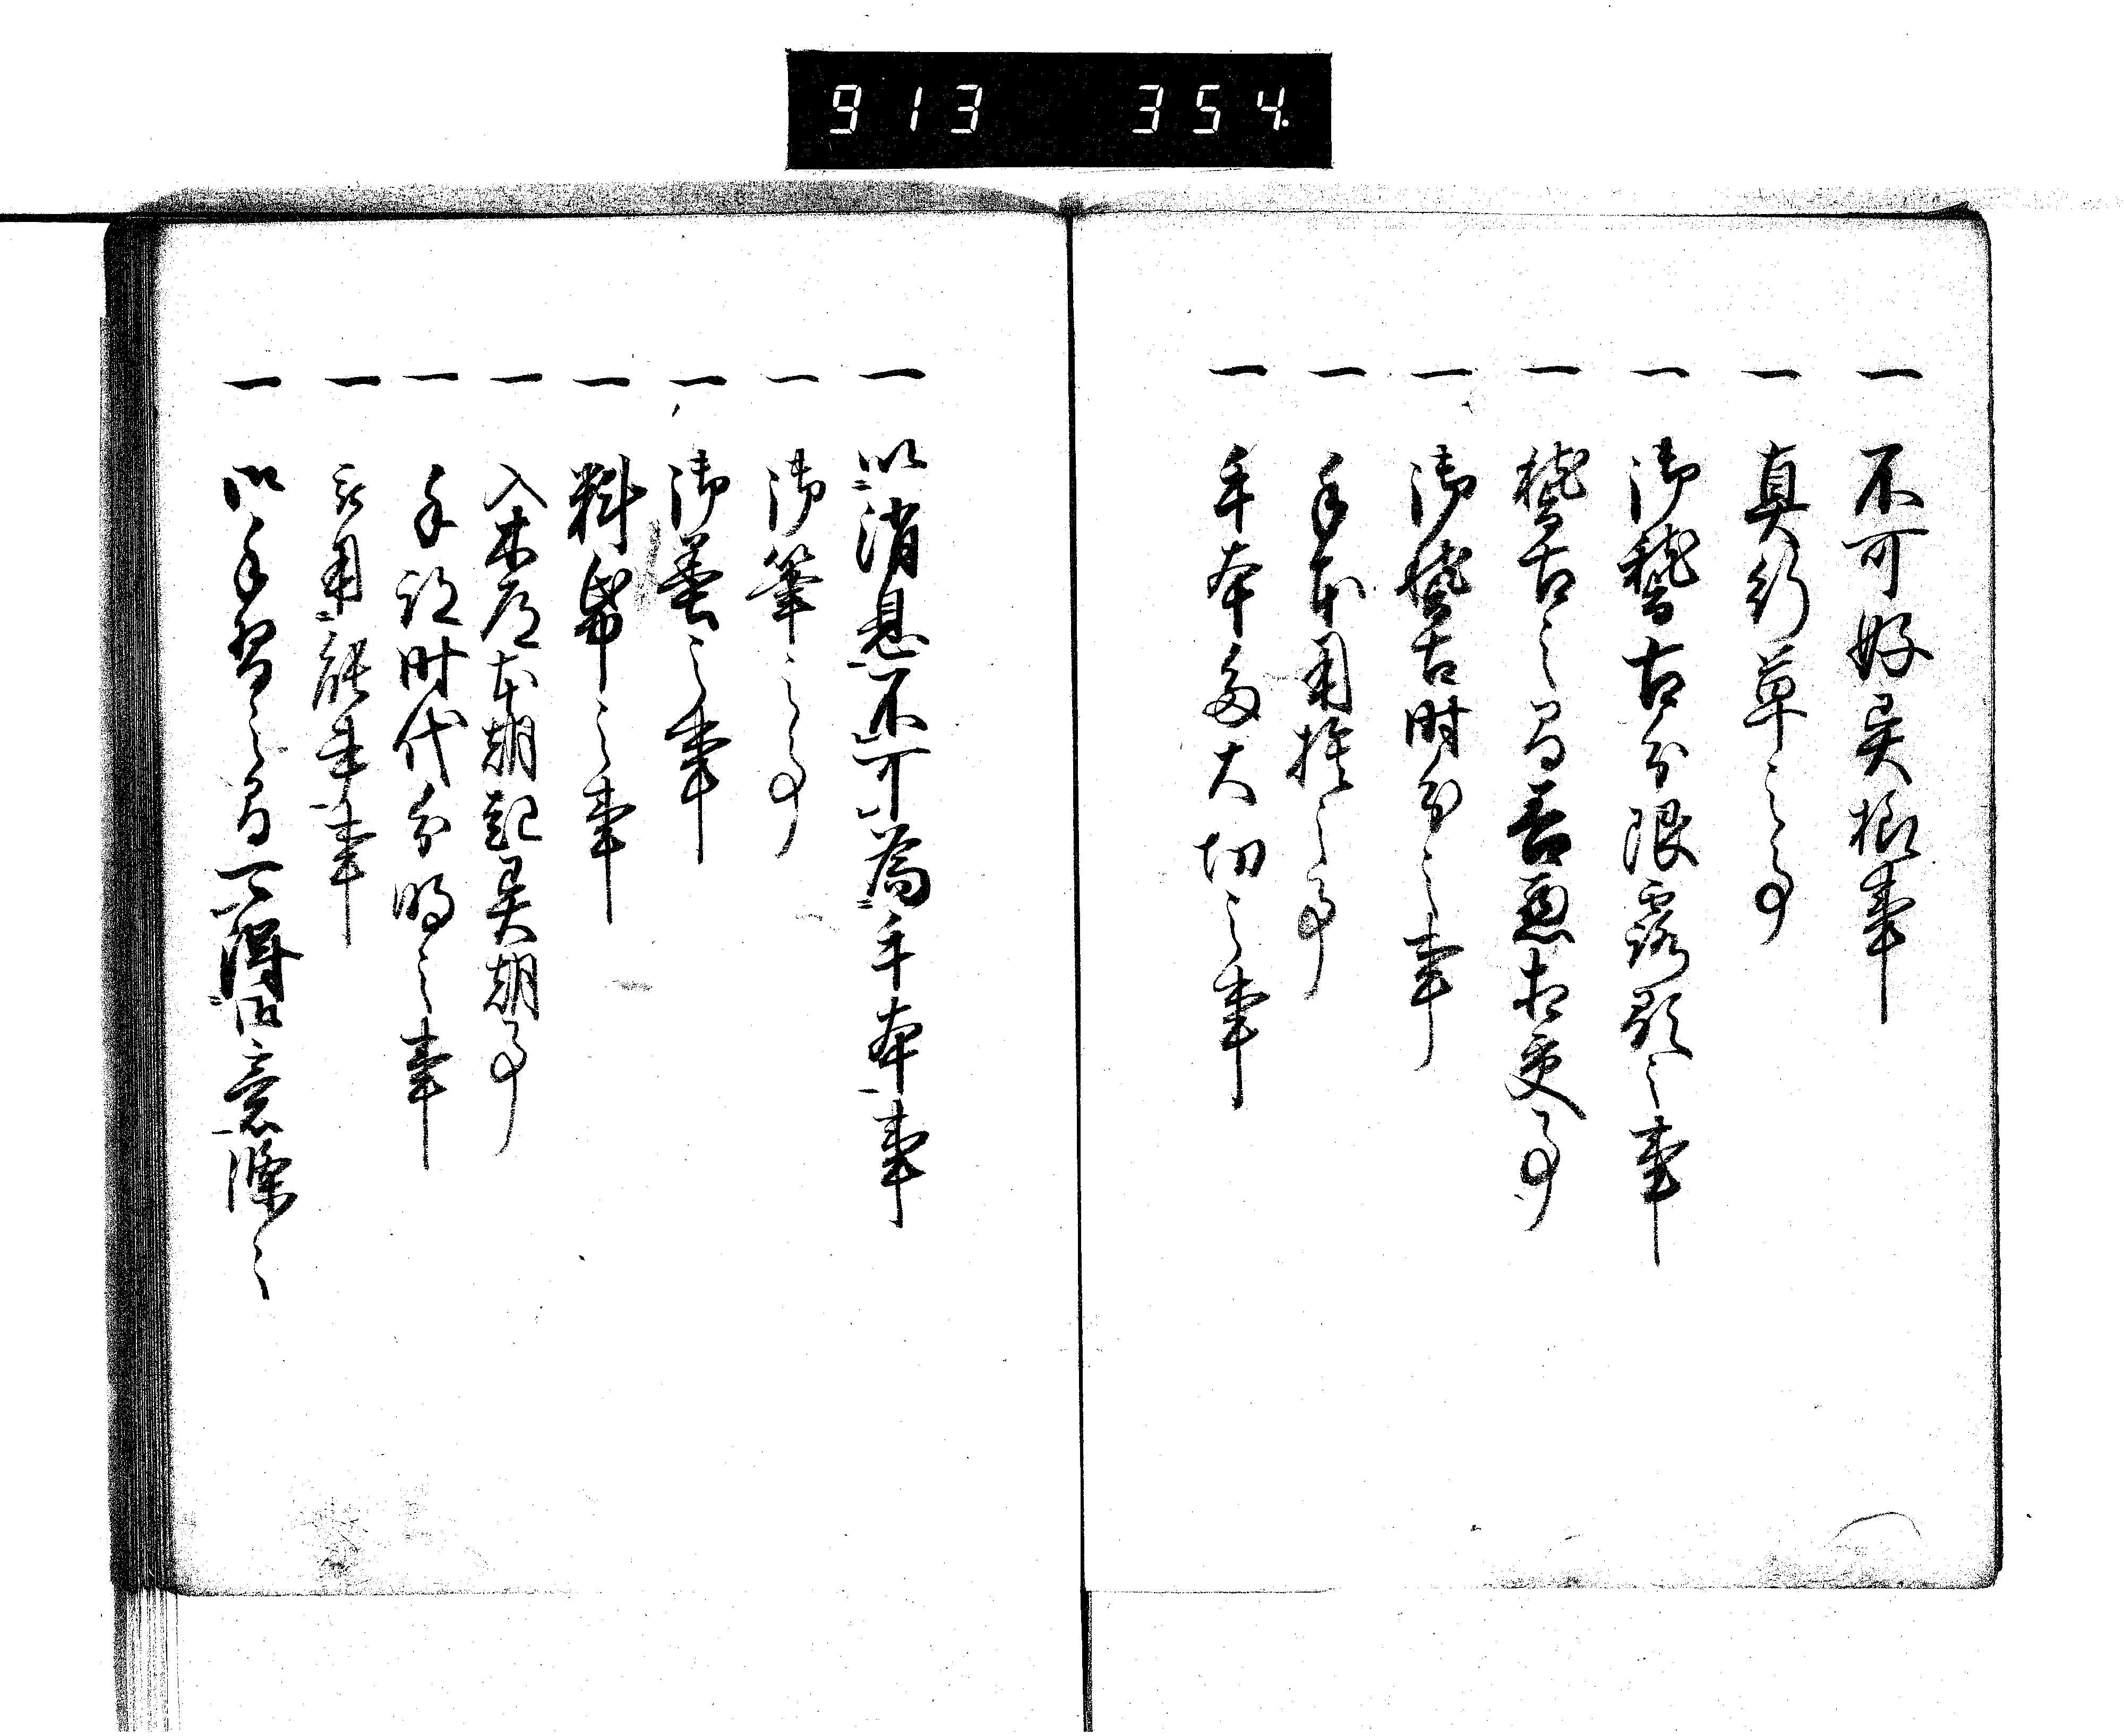 913 354.
一 不可好異様事
一 真行草之事
一 御稽古分限露顕之事
一 稽古之間善悪相交事
一 御稽古時分之事
一 手本用捨之事
一 手本多大切之事
一 以消息不可為手本事
一 御筆之事
一 御墨之事
一 料帋之事
一 入木道本朝起異朝事
一 手跡時代分明之事
一 被用能書事
一 以手習之間可得他意條之